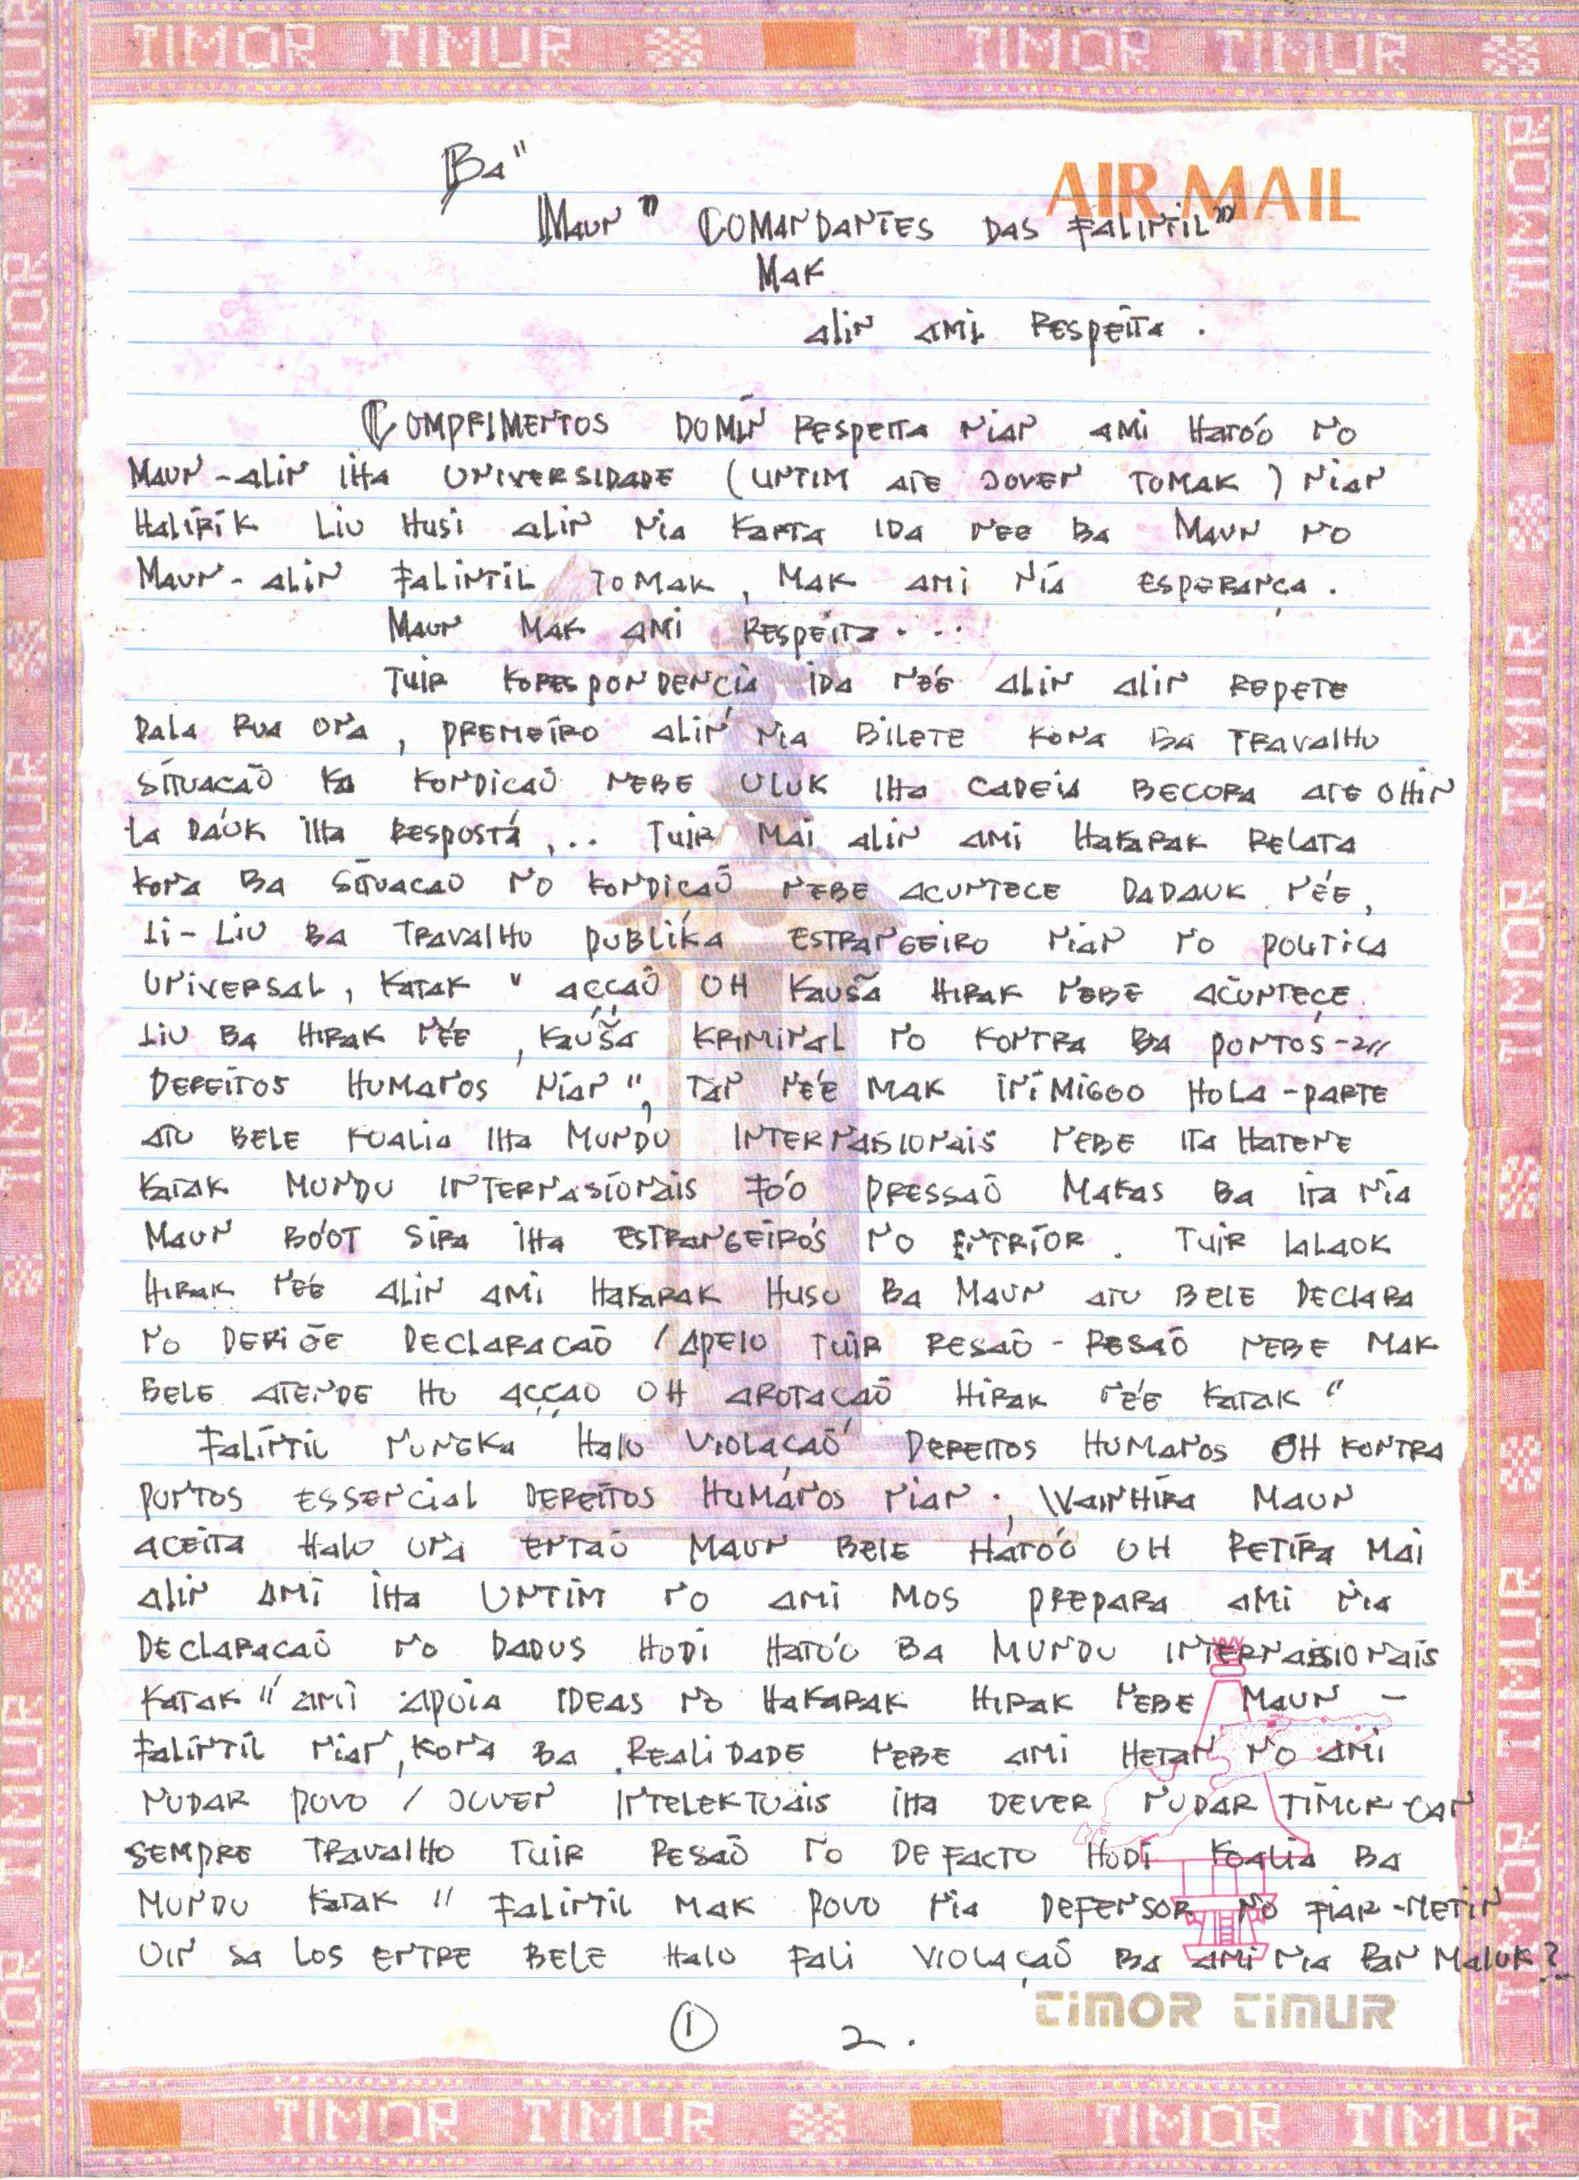 TIMOR TIMUR TIMOR TIMUR
AIR MAIL
Ba"
Maun" Comandantes das Falintil"
Mak
alin ami Respeita.
Comprimentos domin Respeita nian ami Hatóo no
Maun-alin iha Universidade (Untim ate Joven tomak) nian
Halirik liu husi alin nia karta ida nee ba Maun no
Maun-alin Falintil tomak, mak ami nia esperança.
Maun mak ami Respeita...
Tuir korespondencia ida neé alin alin repete
dala rua ona, premeiro alin nia bilete kona ba travalho
situacaõ ka kondicaõ nebe uluk iha cadeia Becora ate ohin
la dáuk iha resposta,.. Tuir mai alin ami hakarak relata
kona ba situacao no kondiçaõ nebe acuntece dadauk néé,
li-liu ba travalho publika estrangeiro nian no politica
universal, katak " acçaõ oh kauša hirak nebe acuntece
liu ba hirak néé, kauša kriminal no kontra ba pontos-2
dereitos humanos nian", tan neé mak inimigoo hola-parte
atu bele koalia iha mundu internasionais nebe ita hatene
katak mundu internasionais fó'o pressaõ makas ba ita nia
maun bóot sira iha estrangeirós no entrior. Tuir lalaok
hirak neé alin ami hakarak husu ba maun atu bele declara
no derige declaracaõ / apelo tuir resaõ-resaõ nebe mak
bele atende hu acçao oh arotaçaõ hirak neé katak "
Falintil nungka halo violaçaõ dereitos humanos oh kontra
puntos essencial dereitos humanos nian., Wainhira maun
aceita halo una entaõ maun bele hatóó oh retira mai
alin ami iha Untim no ami mos prepara ami nia
declaracaõ no dadus hodi hatóo ba mundu internasionais
katak " ami apoia ideas no hakarak hirak nebe maun -
Falintil nian, kona ba realidade nebe ami hetan no ami
nudar povo / joven intelektuais iha dever nudar timor oan
sempre travalho tuir resaõ no de facto hodi koalia ba
mundu katak " Falintil mak povo nia defensor no fiar-metin
oin sa los entre bele halo fali violaçaõ ba ami nia ran maluk?
① 2.
TIMOR TIMUR
TIMOR TIMUR TIMOR TIMUR